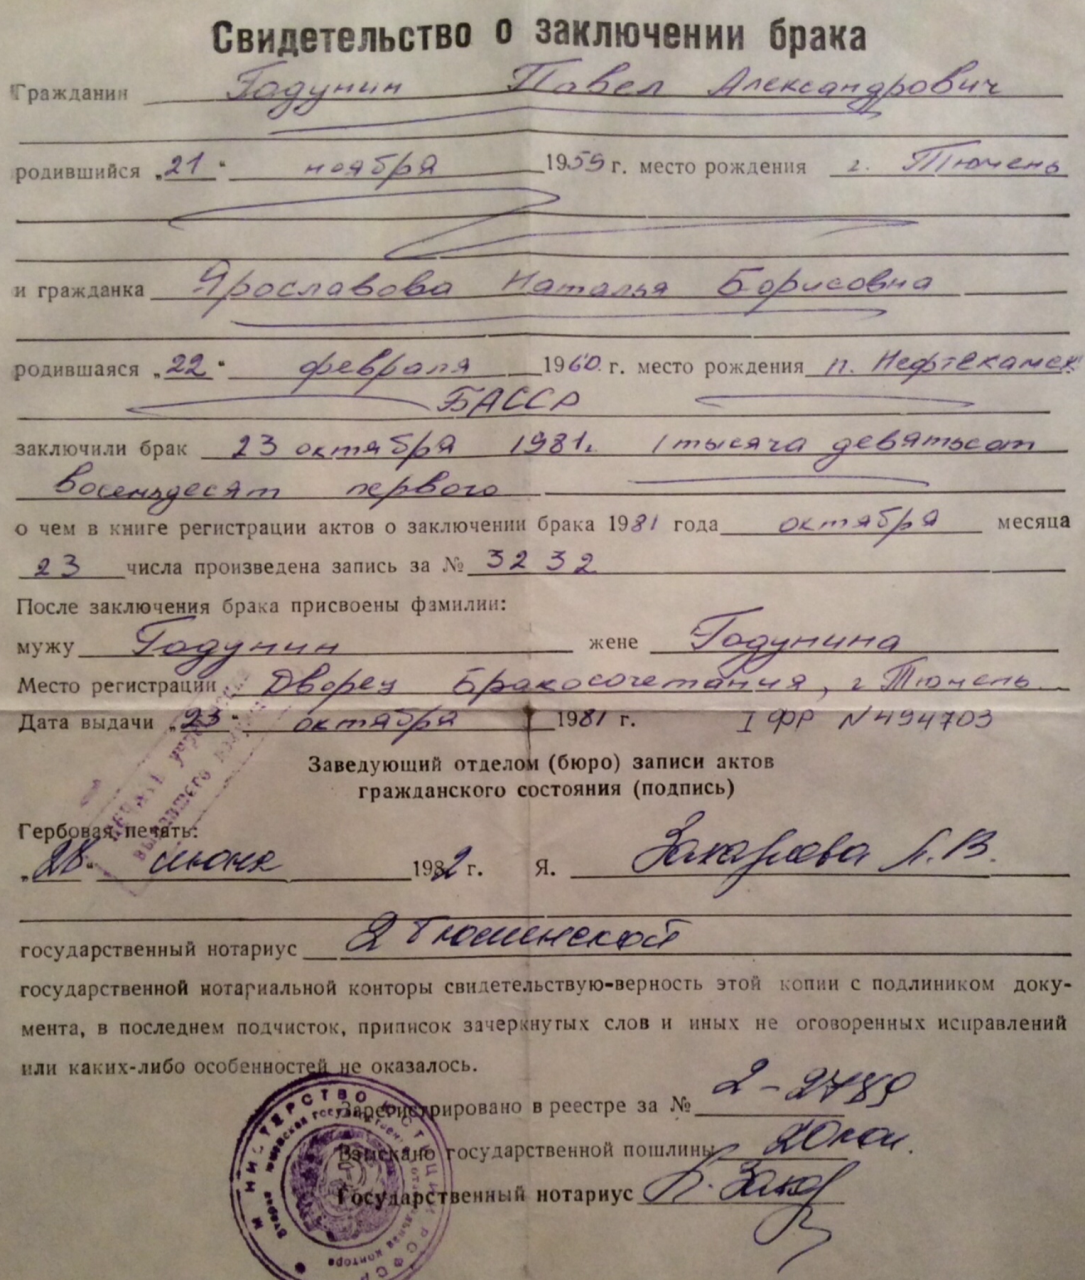 Свидетельство о заключении брака
Гражданин Годунин Павел Александрович
родившийся „21" ноября 1959 г. место рождения г. Тюмень
и гражданка Ярославова Наталья Борисовна
родившаяся „22" февраля 1960. г. место рождения п. Нефтекамск
БАССР
заключили брак 23 октября 1981г. 1 тысяча девятьсот
восемьдесят первого
о чем в книге регистрации актов о заключении брака 1981 года октября месяца
23 числа произведена запись за № 3232
После заключения брака присвоены фамилии:
мужу Годунин жене Годунина
Место регистрации Дворец Бракосочетания, г Тюмень
Дата выдачи „23" октября 1981 г. I ФР N 494703
Заведующий отделом (бюро) записи актов
гражданского состояния (подпись)
Гербовая печать:
„28" июня 1982 г. Я. Захарова Л. В.
государственный нотариус 2 Тюменской
государственной нотариальной конторы свидетельствую-верность этой копии с подлиником доку-
мента, в последнем подчисток, приписок зачеркнутых слов и иных не оговоренных исправлений
или каких-либо особенностей не оказалось.
Зарегистрировано в реестре за № 2-2789
Взыскано государственной пошлины 20коп.
Государственный нотариус
МИНИСТЕРСТВО ЮСТИЦИИ РСФСР